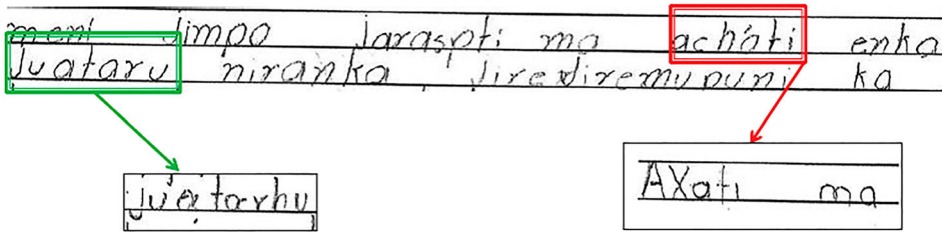 meni jimpo jaraspti ma acháti enka
juataru niranka jirexjiremupuni ka
ju'atarhu
AXati ma